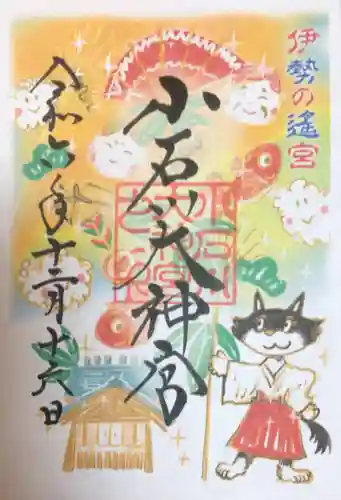 伊勢の遙宮
小石川大神宮
令和六年十二月十六日